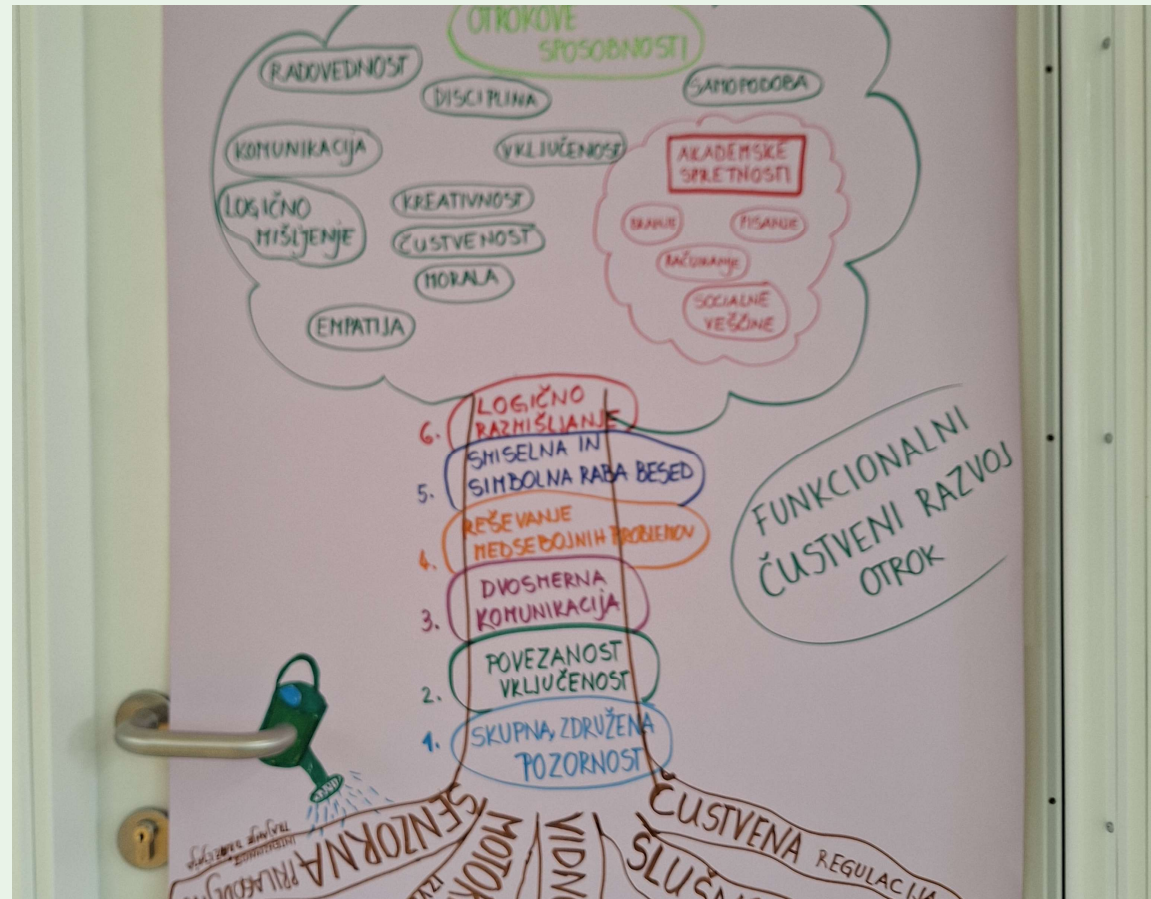 OTROKOVE
SPOSOBNOSTI
RADOVEDNOST
DISCIPLINA
SAMOPODOBA
KOMUNIKACIJA
VKLJUČENOST
AKADEMSKE
SPRETNOSTI
LOGIČNO
MIŠLJENJE
KREATIVNOST
ČUSTVENOST
MORALA
BRANJE
PISANJE
RAČUNANJE
SOCIALNE
VEŠČINE
EMPATIJA
6. LOGIČNO
RAZMIŠLJANJE
5. SMISELNA IN
SIMBOLNA RABA BESED
4. REŠEVANJE
MEDSEBOJNIH PROBLEMOV
3. DVOSMERNA
KOMUNIKACIJA
2. POVEZANOST
VKLJUČENOST
1. SKUPNA, ZDRUŽENA
POZORNOST
FUNKCIONALNI
ČUSTVENI RAZVOJ
OTROK
SENZORNA
ČUSTVENA REGULACIJA